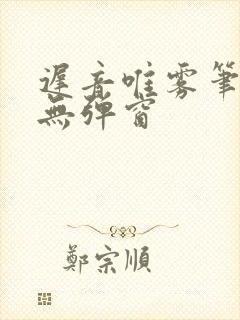 遲音唯雾筆
無弹窗
鄭宗順